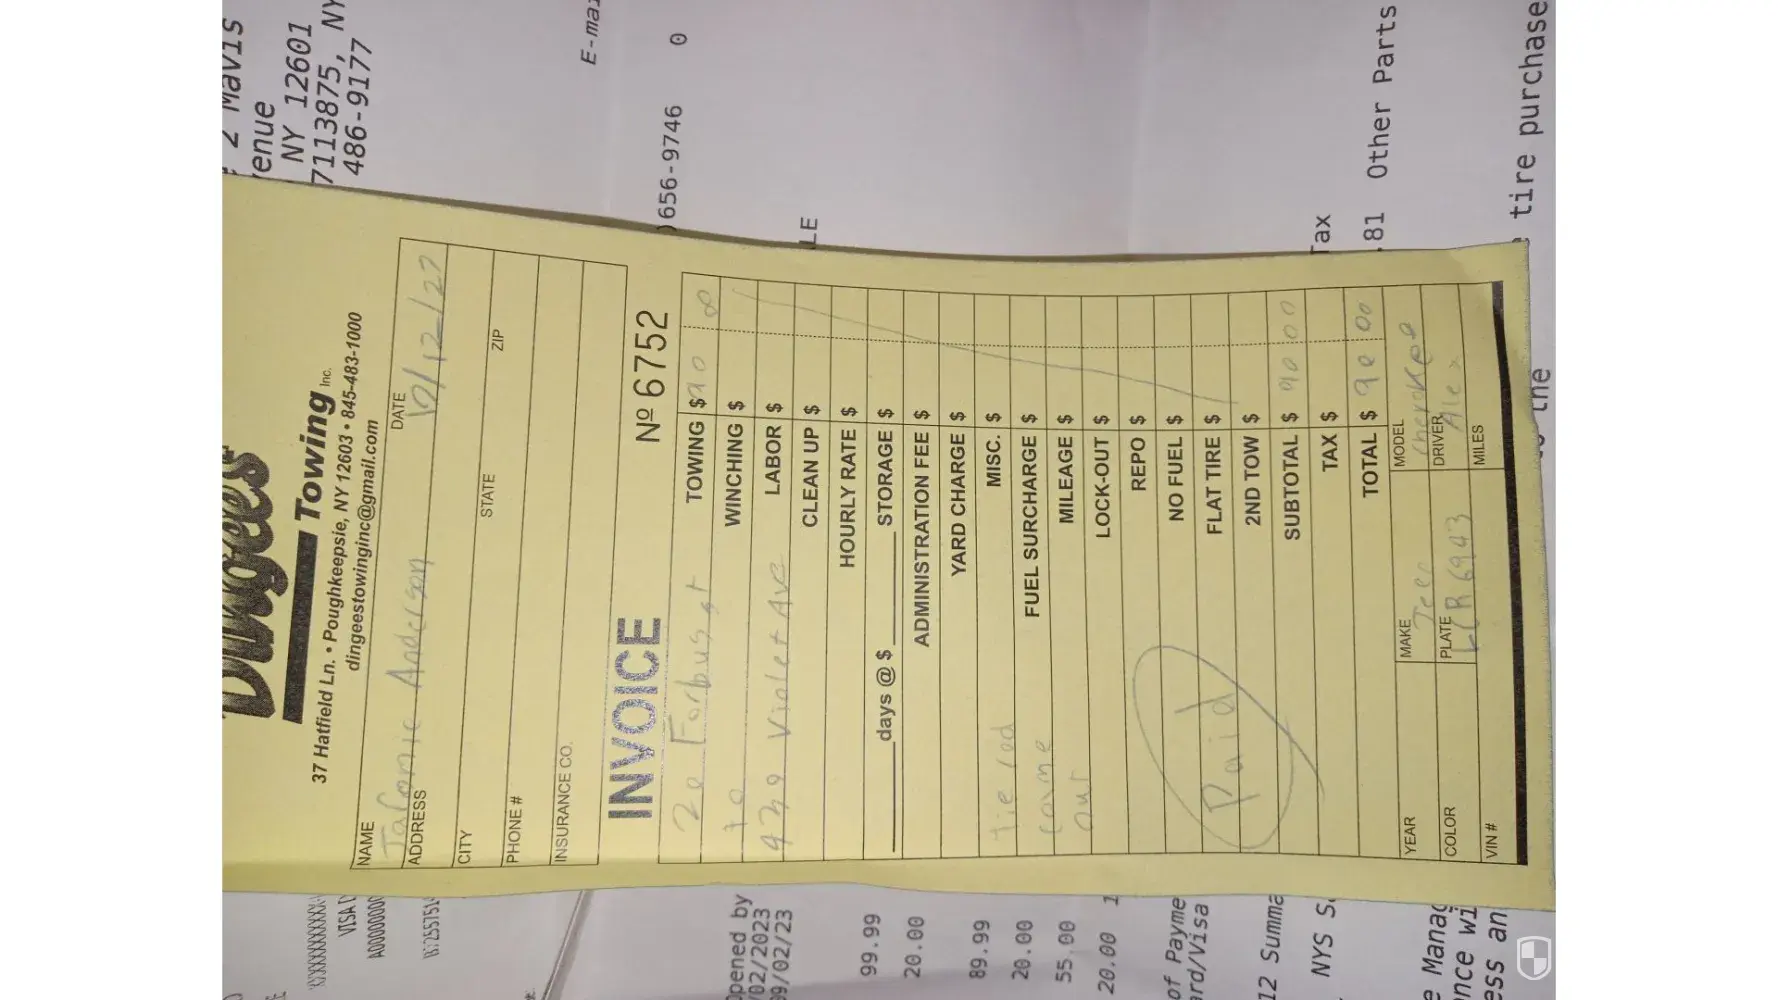 2 Mavis
enue
NY 12601
7113875, NY
486-9177
E-mai
)656-9746 0
LE
Tax
.81 Other Parts
tire purchase
the
Dingee's
Towing Inc.
37 Hatfield Ln. • Poughkeepsie, NY 12603 • 845-483-1000
dingeestowinginc@gmail.com
NAME DATE
Anderson
ADDRESS
CITY STATE ZIP
PHONE #
INSURANCE CO.
INVOICE № 6752
20 Forbus st TOWING $ 90 00
to WINCHING $
Violet Ave LABOR $
CLEAN UP $
HOURLY RATE $
days @ $ STORAGE $
ADMINISTRATION FEE $
YARD CHARGE $
tie rod MISC. $
came FUEL SURCHARGE $
out MILEAGE $
LOCK-OUT $
REPO $
NO FUEL $
Paid FLAT TIRE $
2ND TOW $
SUBTOTAL $ 90 00
TAX $
TOTAL $ 90 00
YEAR MAKE Jeep MODEL Cherokee
COLOR PLATE DRIVER Alex
VIN # MILES
VISA
pened by
/02/2023
9/02/23
99.99
20.00
89.99
20.00
55.00
20.00 1
of Payme
ard/Visa
12 Summa
NYS S
e Manag
ence wi
ess an